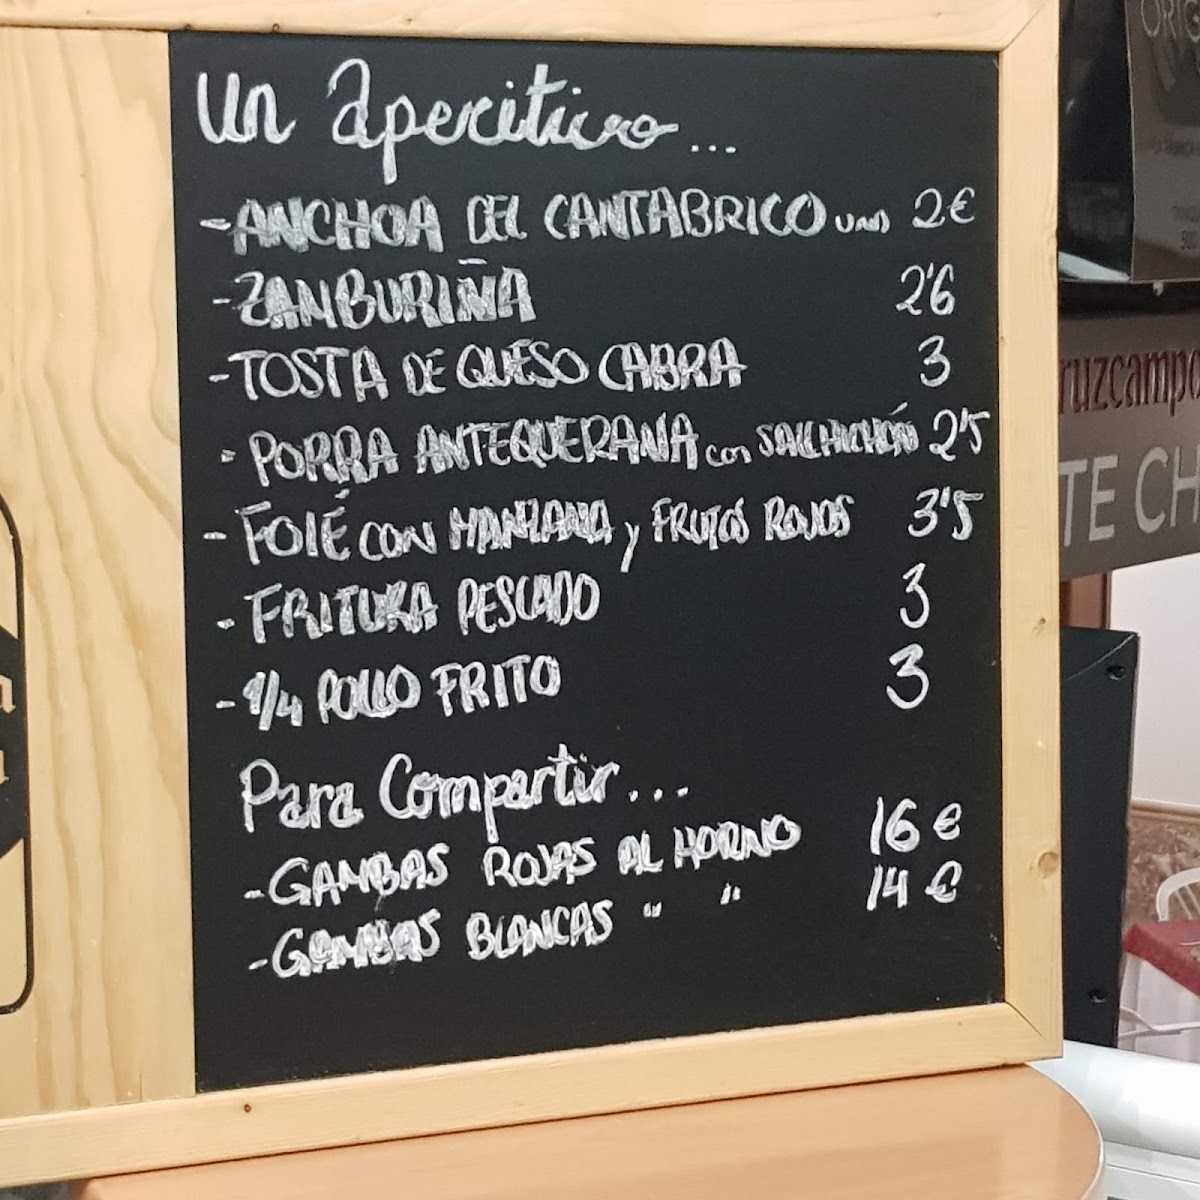 Un aperitivo...
- ANCHOA DEL CANTÁBRICO UND 2€
- ZAMBURIÑA 2'6
- TOSTA DE QUESO CABRA 3
- PORRA ANTEQUERANA con SALCHICHÓN 2'5
- FOIÉ CON MANZANA y FRUTOS ROJOS 3'5
- FRITURA PESCADO 3
- 1/4 POLLO FRITO 3
Para Compartir...
- GAMBAS ROJAS AL HORNO 16 €
- GAMBAS BLANCAS " " 14 €
ruzcampo
TE CH